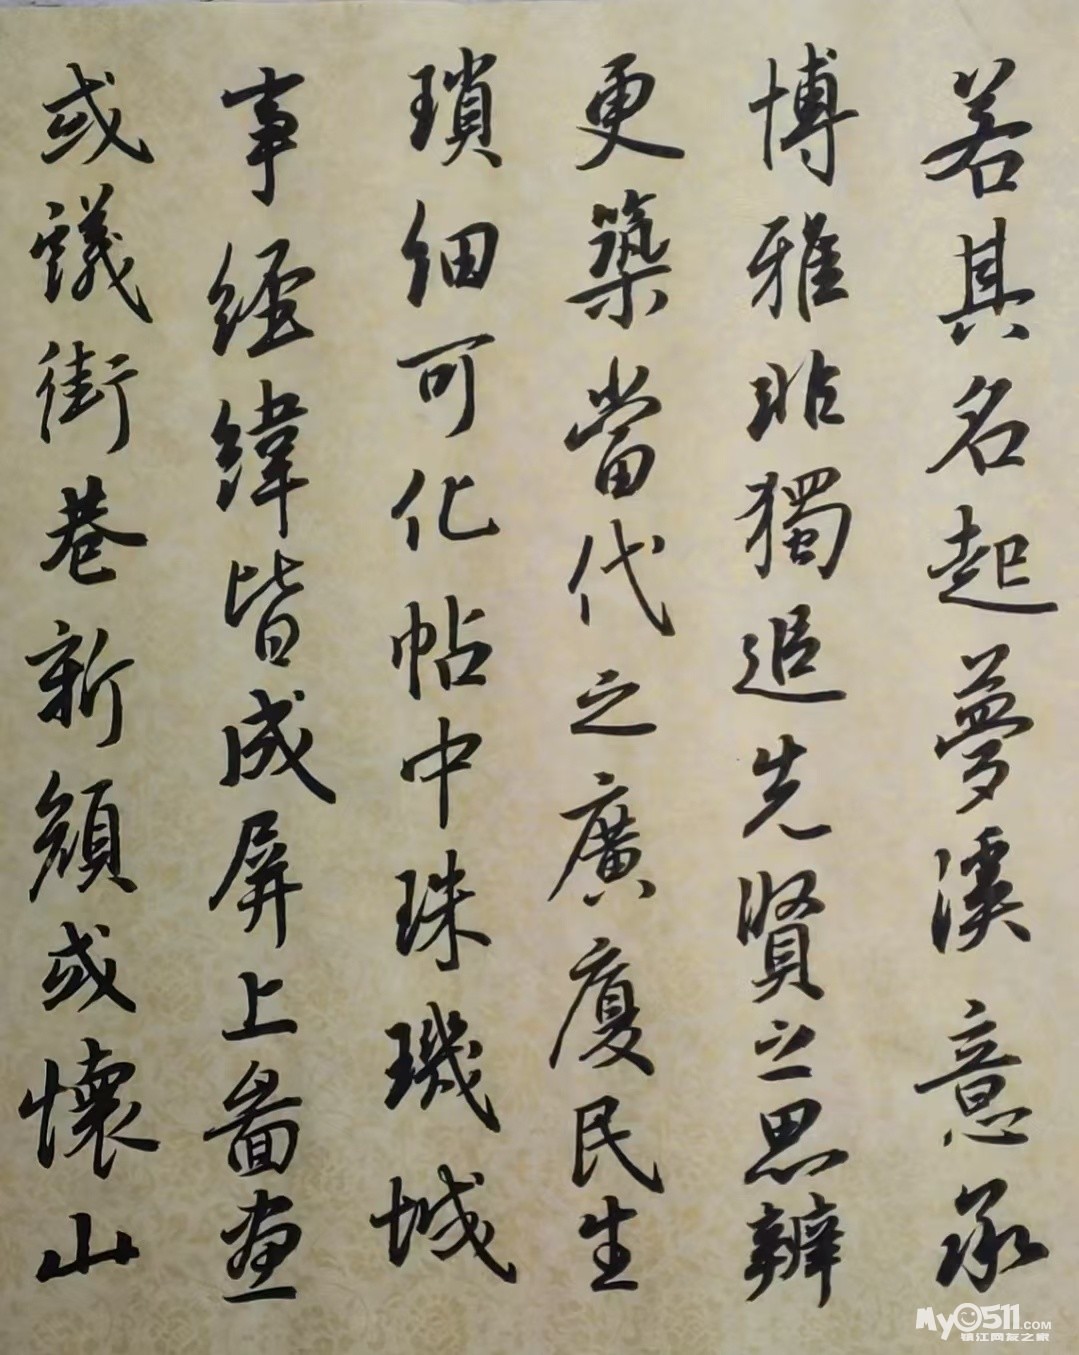 若其名起夢溪意承
博雅非獨追先賢之思辨
更築當代之廣廈民生
瑣細可化帖中珠璣城
事經緯皆成屏上圖畫
或議街巷新顏或懷山
My0511.COM
镇江网友之家